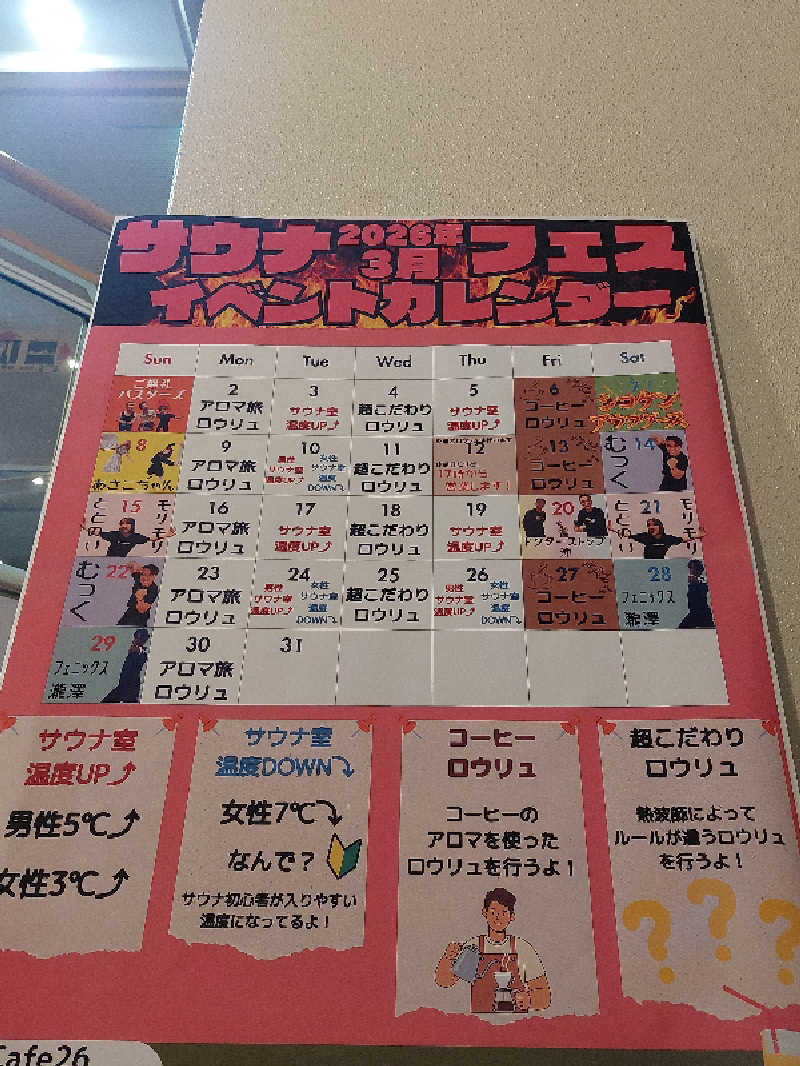 サウナ 2026年 3月 フェス
イベントカレンダー
Sun Mon Tue Wed Thu Fri Sat
ご献上
バスターズ
2
アロマ旅
ロウリュ
3
サウナ室
温度UP
4
超こだわり
ロウリュ
5
サウナ室
温度UP
6
コーヒー
ロウリュ
8
あさこちゃん
9
アロマ旅
ロウリュ
10
男性
サウナ室
温度UP
女性
サウナ室
温度
DOWN
11
超こだわり
ロウリュ
12
営業します!
13
コーヒー
ロウリュ
14
むっく
15
ととのい
モリモリ
16
アロマ旅
ロウリュ
17
サウナ室
温度UP
18
超こだわり
ロウリュ
19
サウナ室
温度UP
20
ドクターストップ
21
ととのい
モリモリ
22
むっく
23
アロマ旅
ロウリュ
24
男性
サウナ室
温度UP
女性
サウナ室
温度
DOWN
25
超こだわり
ロウリュ
26
男性
サウナ室
温度UP
女性
サウナ室
温度
DOWN
27
コーヒー
ロウリュ
28
フェニックス
瀧澤
29
フェニックス
瀧澤
30
アロマ旅
ロウリュ
31
サウナ室
温度UP
男性5℃
女性3℃
サウナ室
温度DOWN
女性7℃
なんで?
サウナ初心者が入りやすい
温度になってるよ!
コーヒー
ロウリュ
コーヒーの
アロマを使った
ロウリュを行うよ!
超こだわり
ロウリュ
熱波師によって
ルールが違うロウリュ
を行うよ!
? ? ?
Cafe26